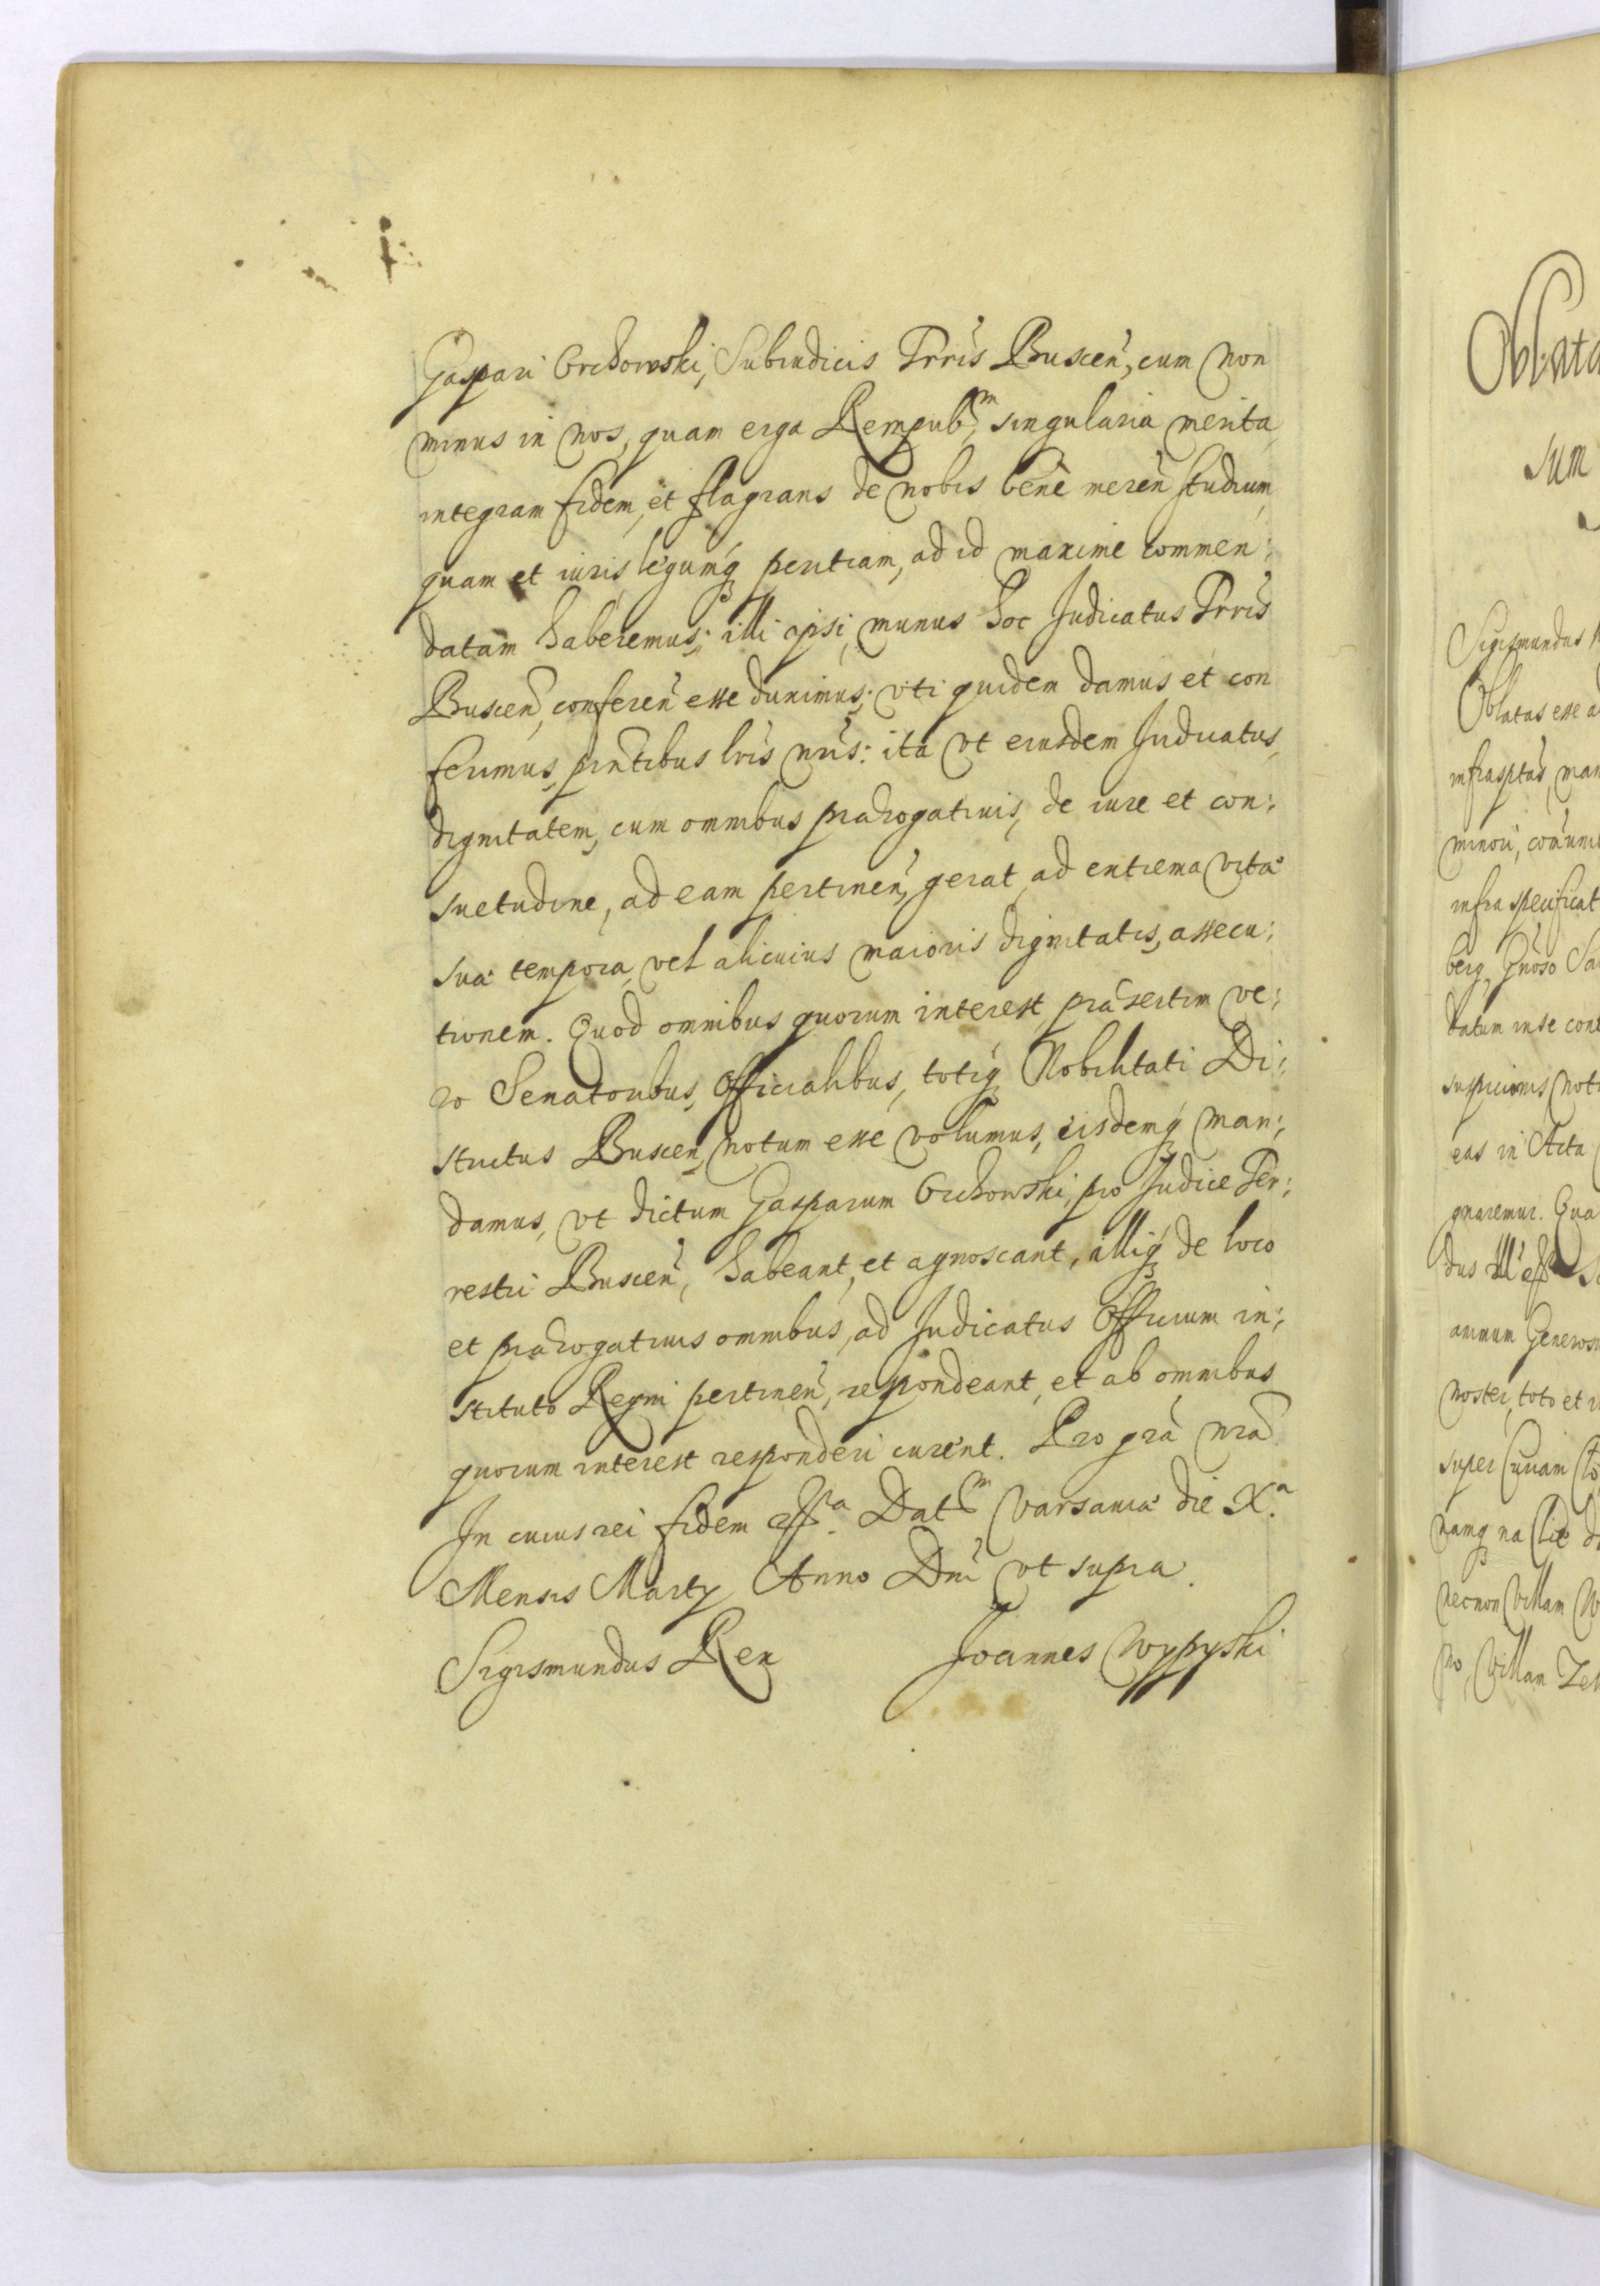 Gaspari Orchowski, Subiudicis Trris Buscen, cum non
minus in nos, quam erga Rempub.m singularia merita,
integram fidem, et flagrans de nobis bene meren studium,
quam et iuris legumq peritiam, ad id maxime commen:
datam haberemus; illi ipsi, munus hoc Judicatus Trris
Buscen, conferen esse duximus; uti quidem damus et con
ferimus, pntibus lris nris: ita vt eiusdem Judicatus,
dignitatem, cum omnibus prærogatiuis, de iure et con:
suetudine, ad eam pertinen, gerat, ad extrema vitæ
suæ tempora, vel alicuius maioris dignitatis, assecu:
tionem. Quod omnibus quorum interest, præsertim ve:
ro Senatoribus, Officialibus, totiq Nobilitati Di:
strictus Buscen, notum esse volumus, eisdemq man:
damus, vt dictum Gasparum Orchowski, pro Judice Ter:
restri Buscen, habeant, et agnoscant, illiq de loco
et prærogatiuis omnibus, ad Judicatus Officium in:
stituto Regni pertinen, respondeant, et ab omnibus
quorum interest responderi curent. Pro gra nra
In cuius rei fidem etc.a Dat.m Varsauiæ die X.a
Mensis Marty Anno Dni vt supra.
Sigismundus Rex Joannes Wypyski
Oblata
sum
Sigismundus
Oblatas esse a
infrasptas, man
minori, coмuni
infra specificat
berg, Gnoso Sa
datum in se cont
suspicionis nota
eas in Acta
gnaremur. Qua
dus
animum Generos
noster, toto et
super
namq na
necnon villam
no, villam Zel